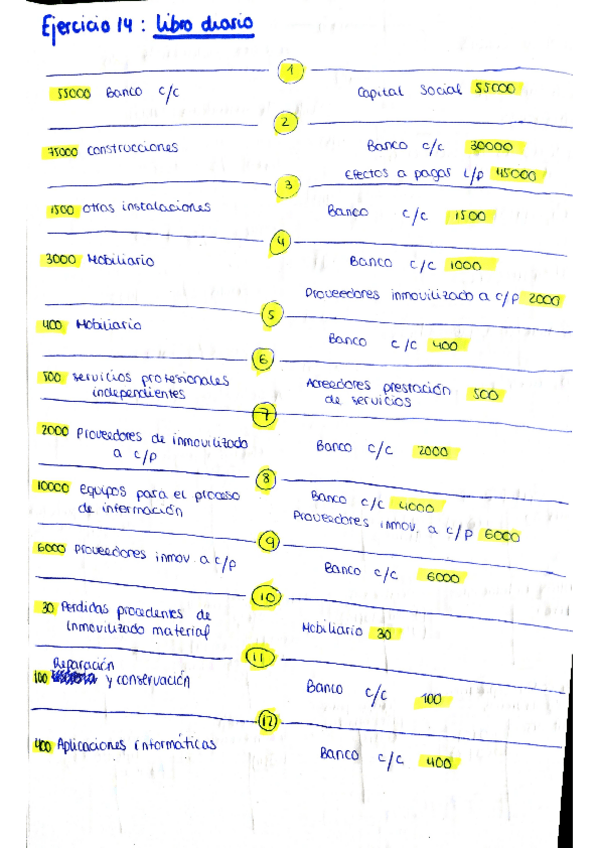 Ejercicio 14 : Libro diario
1
55000 Banco c/c Capital Social 55000
2
75000 construcciones Banco c/c 30000
Efectos a pagar L/p 45000
3
1500 otras instalaciones Banco c/c 1500
4
3000 Mobiliario Banco c/c 1000
Proveedores inmovilizado a c/p 2000
5
400 Mobiliario Banco c/c 400
6
500 servicios profesionales Acreedores prestación 500
independientes de servicios
7
2000 Proveedores de inmovilizado Banco c/c 2000
a c/p
8
10000 equipos para el proceso Banco c/c 4000
de información Proveedores inmov. a c/p 6000
9
6000 Proveedores inmov. a c/p Banco c/c 6000
10
30 Perdidas procedentes de Mobiliario 30
Inmovilizado material
11
Reparación
100 y conservación Banco c/c 100
12
400 Aplicaciones informáticas Banco c/c 400